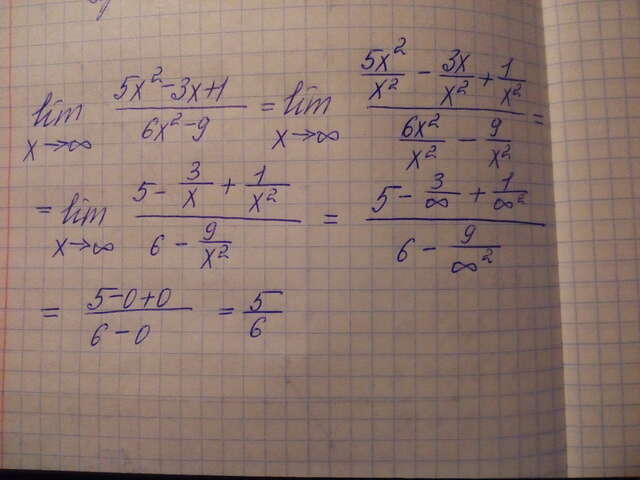 lim x→∞ (5x²-3x+1)/(6x²-9) = lim x→∞ (5x²/x² - 3x/x² + 1/x²)/(6x²/x² - 9/x²) =
= lim x→∞ (5 - 3/x + 1/x²)/(6 - 9/x²) = (5 - 3/∞ + 1/∞²)/(6 - 9/∞²)
= (5-0+0)/(6-0) = 5/6